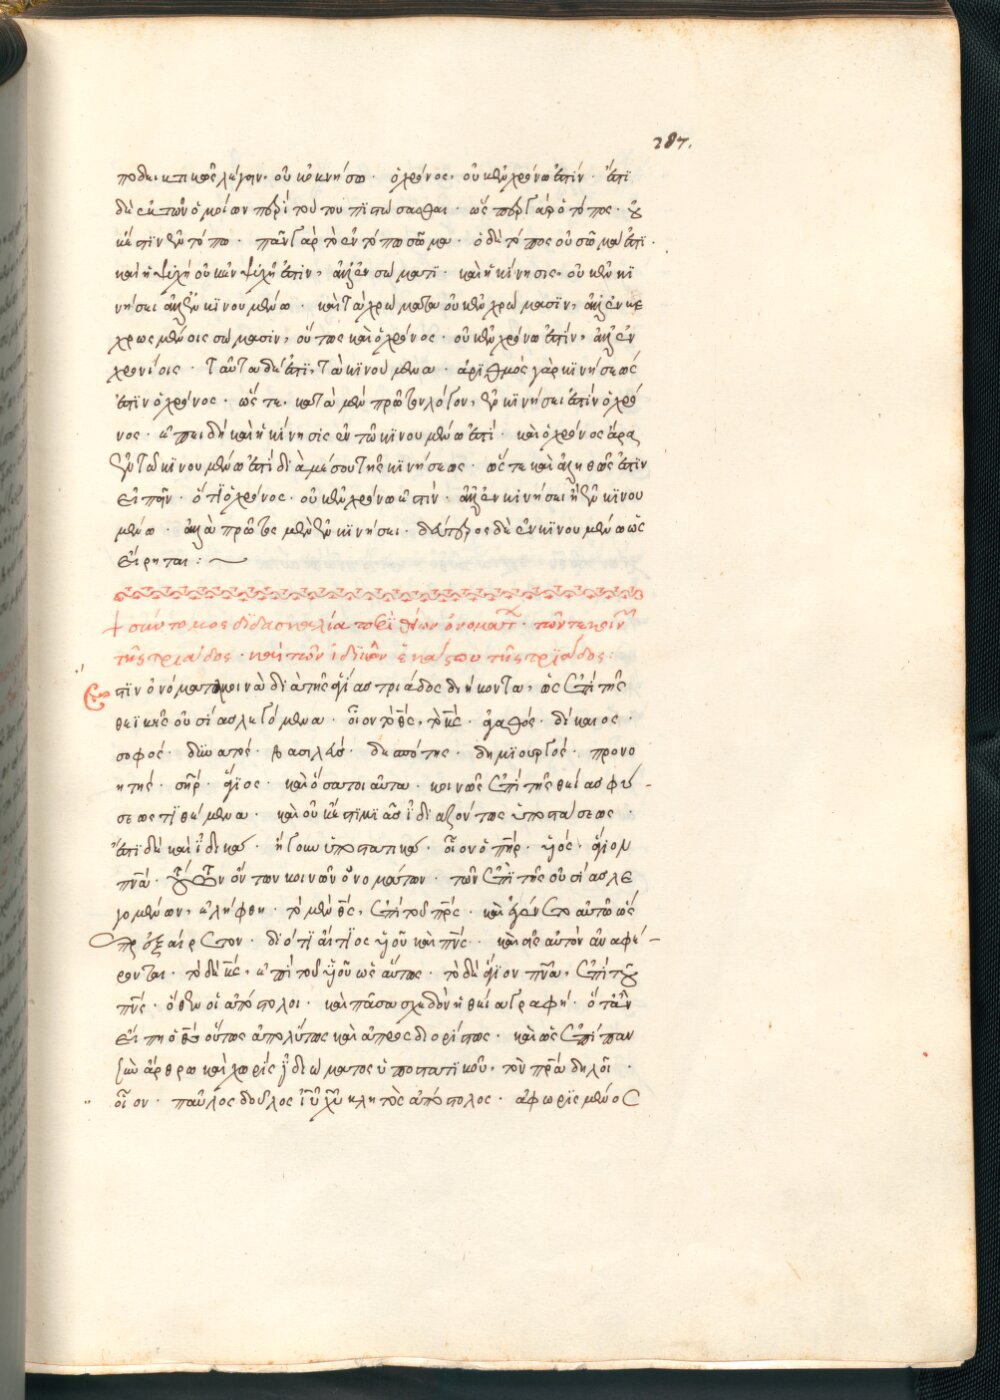 287.
ποδεικτικῶς λέγειν· οὐκ ὀκνήσω· ὁ χρόνος, οὐκ ἐν χρόνω ἐστίν· ἔστι
δὲ ἐκ τῶν ὁμοίων περὶ τούτου πιστώσασθαι· ὥσπερ γὰρ ὁ τόπος· οὐ
κέστιν ἐν τόπω· πᾶν γὰρ τὸ ἐν τόπω σῶμα· ὁ δὲ τόπος οὐ σῶμα ἐστι·
καὶ ἡ ψυχὴ οὐκ ἐν ψυχῆ ἐστιν, ἀλλ' ἐν σώματι· καὶ ἡ κίνησις, οὐκ ἐν κι
νήσει ἀλλ' ἐν κινουμένω· καὶ τὰ χρώματα οὐκ ἐν χρώμασιν, ἀλλ' ἐν κε
χρωσμένοις σώμασιν, οὕτως καὶ ὁ χρόνος· οὐκ ἐν χρόνω ἐστίν, ἀλλ' ἐν
χρονίοις· ταῦτα δὲ ἐστι, τὰ κινούμενα· ἀριθμὸς γὰρ κινήσεως
ἐστιν ὁ χρόνος· ὥστε, κατὰ μὲν πρῶτον λόγον, ἐν κινήσει ἐστὶν ὁ χρό
νος· ἐπειδὴ καὶ ἡ κίνησις ἐν τῶ κινουμένω ἐστί· καὶ ὁ χρόνος ἄρα
ἐν τῶ κινουμένω ἐστὶ διὰ μέσου τῆς κινήσεως· ὥστε καὶ ἀληθῶς ἐστιν
εἰπεῖν· ὅτι ὁ χρόνος· οὐκ ἐν χρόνω ἐστίν· ἀλλ' ἐν κινήσει ἢ ἐν κινου
μένω· ἀλλὰ πρῶτος μὲν ἐν κινήσει· δεύτερος δὲ ἐν κινουμένω ὡς
εἴρηται: ~
+ σύντομος διδασκαλία τῶν θείων ὀνομάτ· τῶν τε κοιν
τῆς τριάδος· καὶ τῶν ἰδικῶν ἑκάστου τῆς τριάδος:
Εστιν ὀνόματα κοινὰ διὰ τῆς ἁγίας τριάδος διήκοντα, ὡς ἐπὶ τῆς
θεικῆς οὐσίας λεγόμενα· οἷον τὸ θς, τὸ κς· ἀγαθός· δίκαιος·
σοφός· δυνατός· βασιλεύς· δεσπότης· δημιουργός· προνο
ητής· σηρ· ἅγιος· καὶ ὅσα τοιαῦτα· κοινῶς ἐπὶ τῆς θείας φύ-
σεως τιθέμενα· καὶ οὐκ ἔστι μιᾶς ἰδιαζόντως ὑποστάσεως·
ἔστι δὲ καὶ ἰδικά· ἤγουν ὑποστατικά· οἷον ὁ πηρ· υἱός· ἅγιον
πνα· οὖν τῶν κοινῶν ὀνομάτων· τῶν ἐπὶ τῆς οὐσίας λε
γομένων, ἐλήφθη· τὸ μὲν θς, ἐπὶ τοῦ πρς· καὶ γέγονεν αὐτῶ ὡς
ἐξαίρετον· διότι αἴτιος υἱοῦ καὶ πνς· καὶ εἰς αὐτὸν ἀναφέ-
ρονται· τὸ δὲ κς, ἐπὶ τοῦ υἱοῦ ὡσαύτως· τὸ δὲ ἅγιον πνα, ἐπὶ τοῦ
πνς· ὅθεν οἱ ἀπόστολοι· καὶ πᾶσα σχεδὸν ἡ θεία γραφή· ὅταν
εἴπη ὁ θς οὕτως ἀπολύτως καὶ ἀπροσδιορίστως· καὶ ὡς ἐπίπαν
σὺν ἄρθρω καὶ χωρὶς ἰδιώματος ὑποστατικοῦ· τὸν πρα δηλοῖ·
οἷον· παῦλος δοῦλος ιυ χυ κλητὸς ἀπόστολος· ἀφωρισμένος